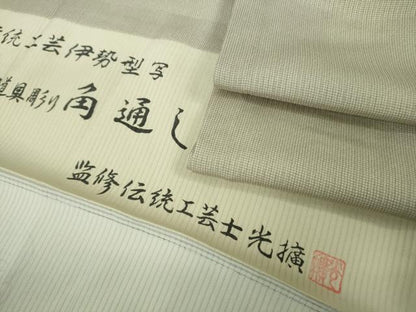 統工芸伊勢型写
道具彫り角通し
监修伝統工芸士光擴